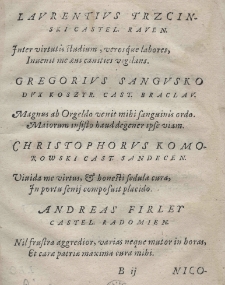 LAVRENTIVS TRZCIN-
SKI CASTEL. RAVEN.
Inter virtutis studium, verosque labores,
Inuenit me ans canities vigilans.
GREGORIVS SANGVSKO
DVX KOSZYR. CAST. BRACLAV.
Magnus ab Orgeldo venit mihi sanguinis ordo.
Maiorum insisto haud degener ipse viam.
CHRISTOPHORVS KOMO-
ROWSKI CAST. SANDECEN.
Viuida me virtus, & honesti sedula cura,
In portu senij composuit placido.
ANDREAS FIRLEY
CASTEL. RADOMIEN.
Nil frustra aggredior, varias neque mutor in horas,
Et cara patria maxima cura mihi.
B ij NICO-